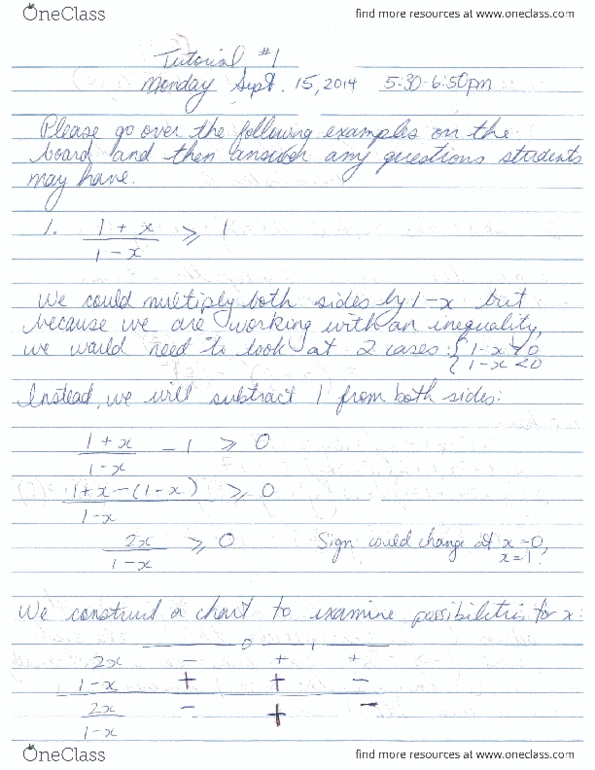 OneClass
find more resources at www.oneclass.com
Tutorial #1
Monday Sept. 15, 2014 5:30-6:50pm
Please go over the following examples on the
board and then answer any questions students
may have.
1. 1 + x ≥ 1
1 - x
We could multiply both sides by 1-x but
because we are working with an inequality,
we would need to look at 2 cases: { 1-x > 0
{ 1-x < 0
Instead, we will subtract 1 from both sides:
1 + x - 1 ≥ 0
1-x
1+x-(1-x) ≥ 0
1-x
2x ≥ 0 Sign could change at x=0,
1-x x=1.
We construct a chart to examine possibilities for x:
0 1
2x - + +
1-x + + -
2x - + -
1-x
OneClass
find more resources at www.oneclass.com